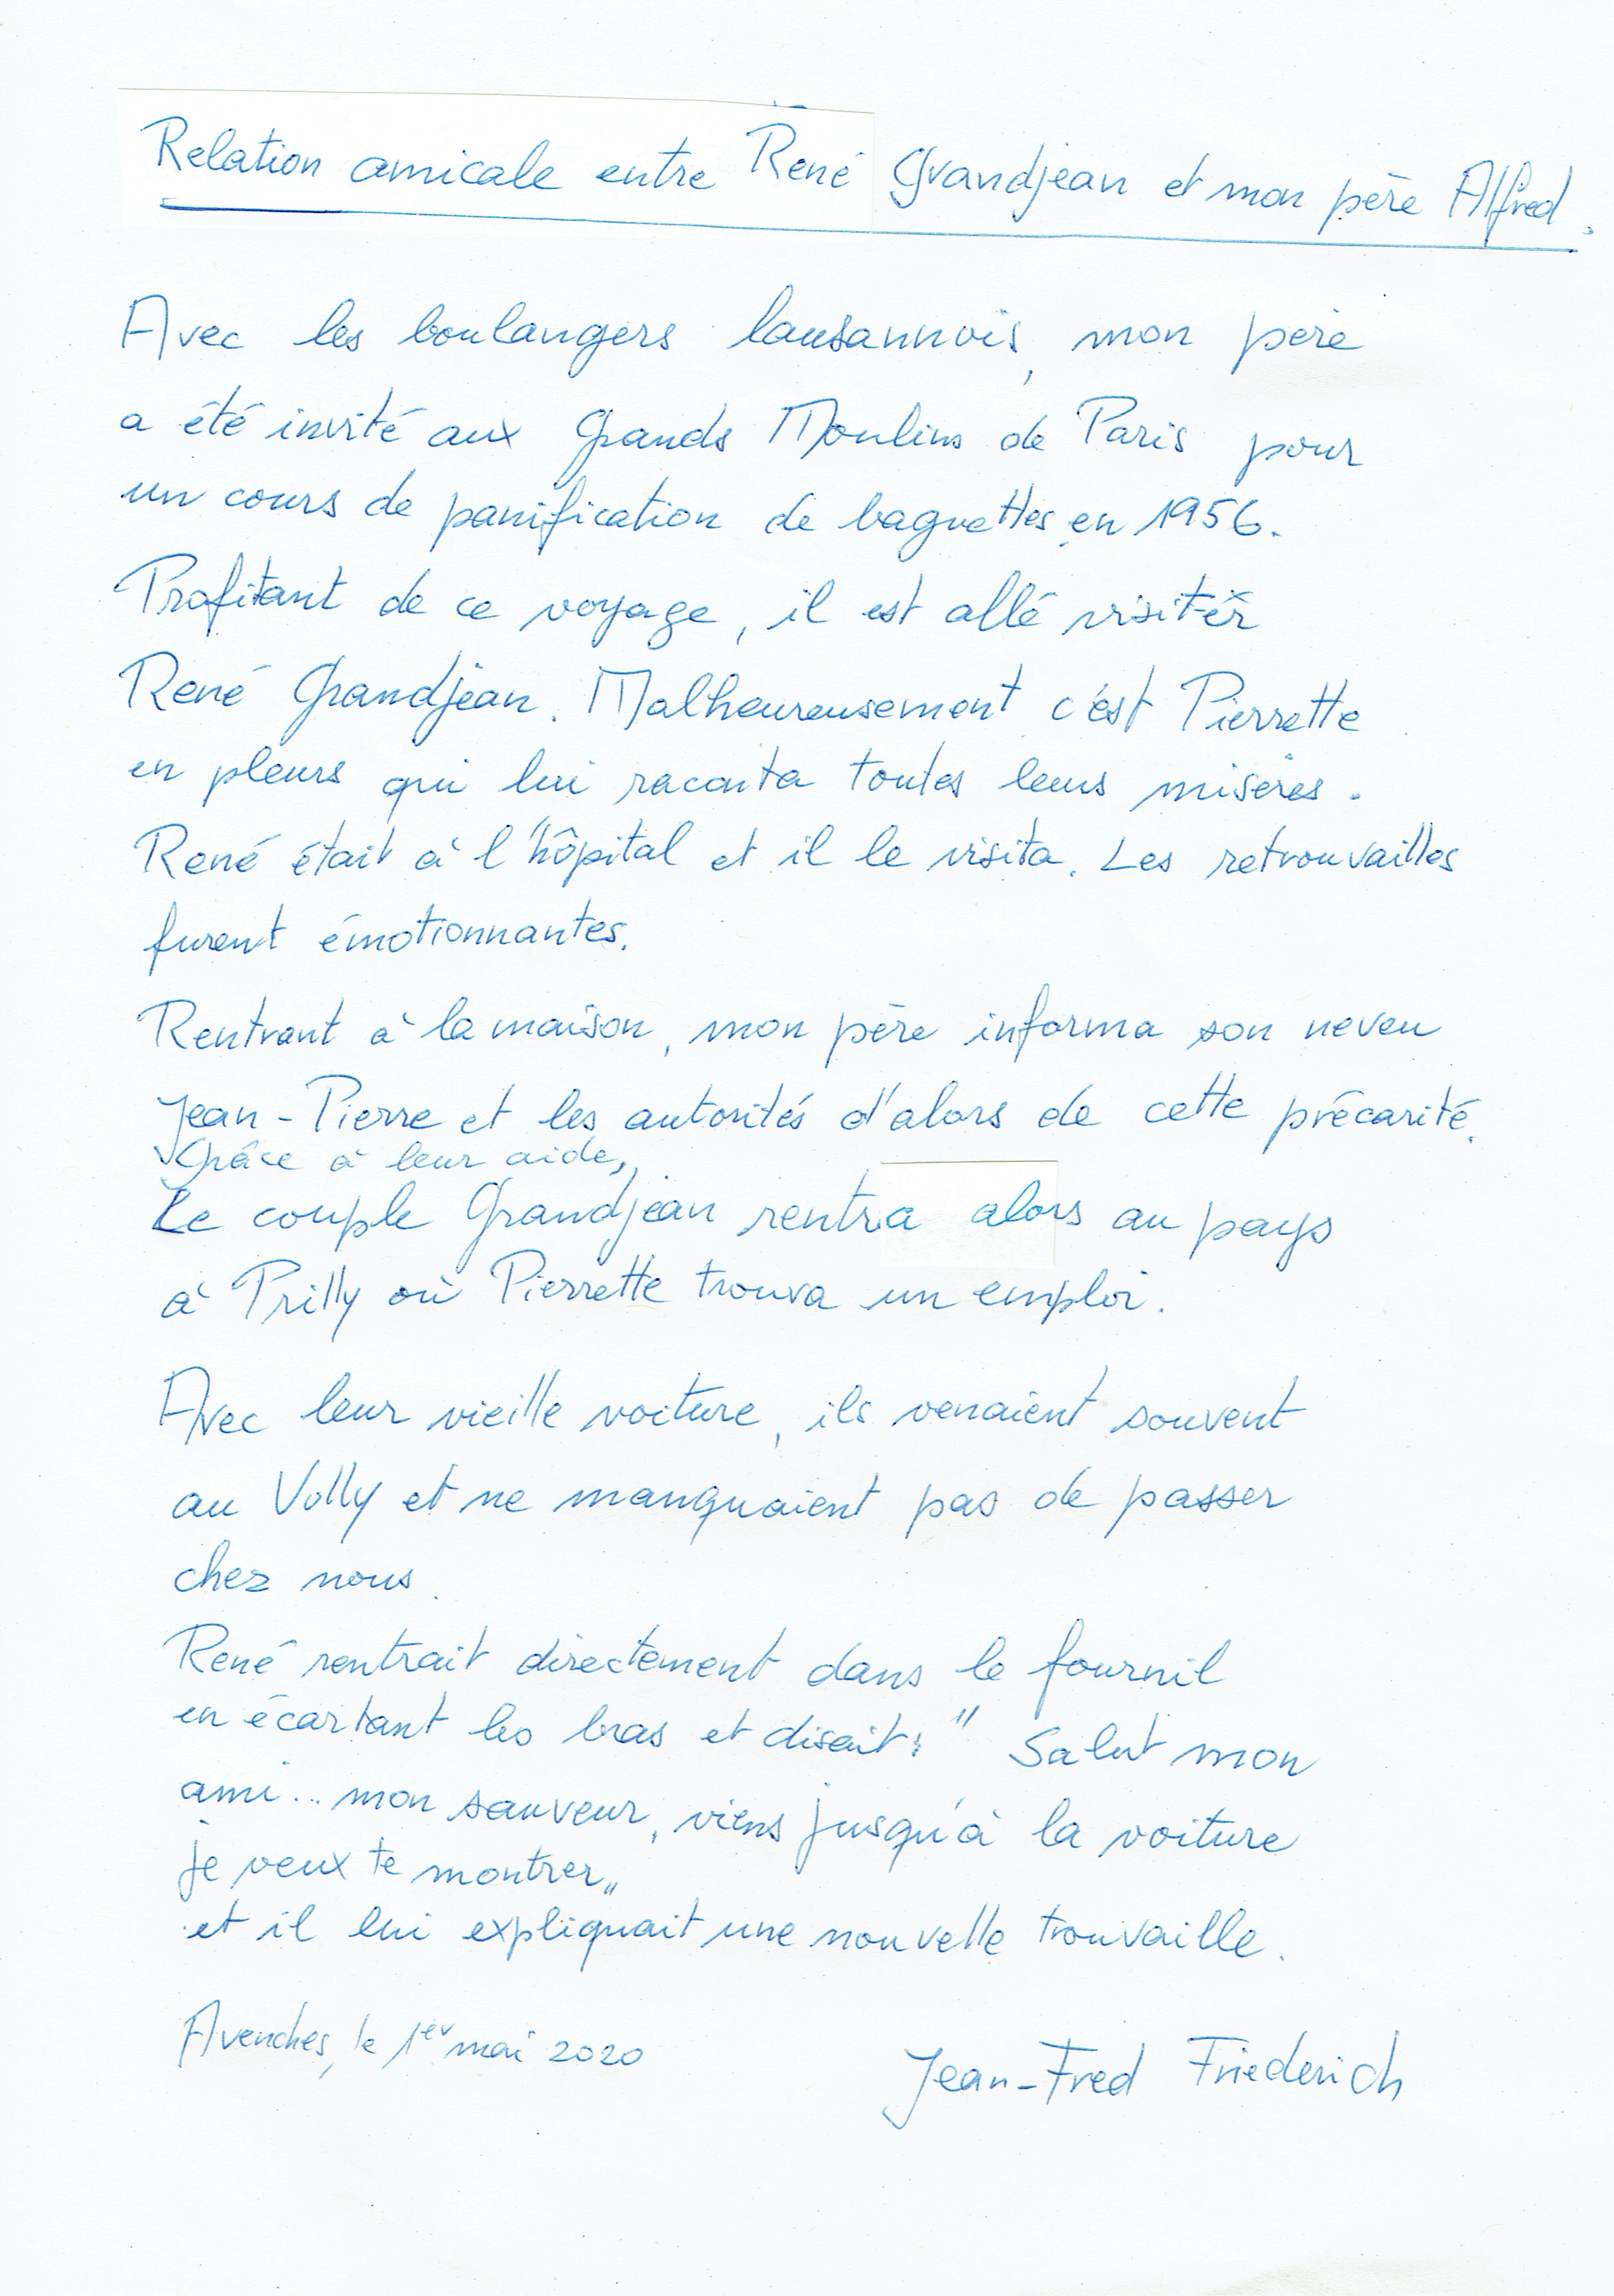 Relation amicale entre René Grandjean et mon père Alfred.
Avec les boulangers lausannois, mon père
a été invité aux Grands Moulins de Paris pour
un cours de panification de baguettes en 1956.
Profitant de ce voyage, il est allé visiter
René Grandjean. Malheureusement c'est Pierrette
en pleurs qui lui raconta toutes leurs misères.
René était à l'hôpital et il le visita. Les retrouvailles
furent émotionnantes.
Rentrant à la maison, mon père informa son neveu
Jean-Pierre et les autorités d'alors de cette précarité.
Grâce à leur aide,
Le couple Grandjean rentra alors au pays
à Prilly où Pierrette trouva un emploi.
Avec leur vieille voiture, ils venaient souvent
au Vully et ne manquaient pas de passer
chez nous.
René rentrait directement dans le fournil
en écartant les bras et disait: " Salut mon
ami... mon sauveur, viens jusqu'à la voiture
je veux te montrer"
et il lui expliquait une nouvelle trouvaille.
Avenches, le 1er mai 2020
Jean-Fred Friederich